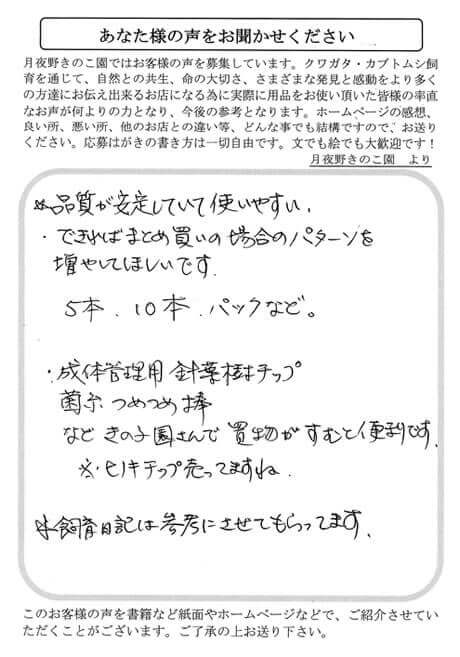 あなた様の声をお聞かせください
月夜野きのこ園ではお客様の声を募集しています。クワガタ・カブトムシ飼
育を通じて、自然との共生、命の大切さ、さまざまな発見と感動をより多く
の方達にお伝え出来るお店になる為に実際に用品をお使い頂いた皆様の率直
なお声が何よりの力となり、今後の参考となります。ホームページの感想、
良い所、悪い所、他のお店との違い等、どんな事でも結構ですので、お送り
ください。応募はがきの書き方は一切自由です。文でも絵でも大歓迎です！
月夜野きのこ園 より
※品質が安定していて使いやすい。
・できればまとめ買いの場合のパターンを
増やしてほしいです。
5本、10本、パックなど。
・成体管理用 針葉樹チップ
菌糸つめつめ棒
など きのこ園さんで 買物がすむと便利です。
※ヒノキチップ売ってますね。
※飼育日記は参考にさせてもらってます。
このお客様の声を書籍など紙面やホームページなどで、ご紹介させてい
ただくことがございます。ご了承の上お送り下さい。